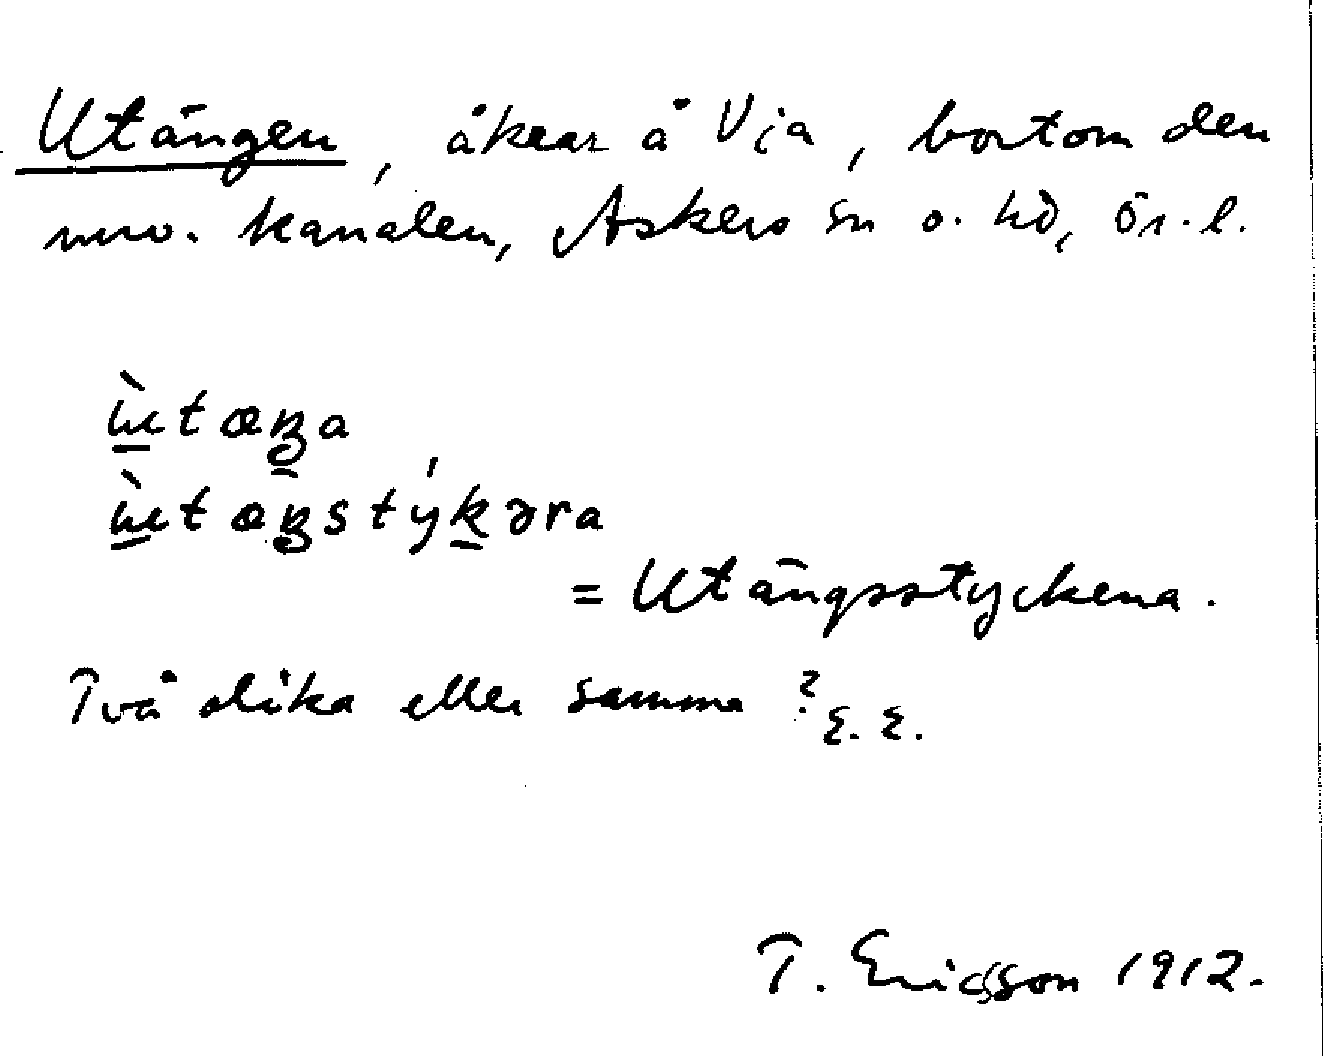 Utängen, åkrar å Via, bortom den
nuv. kanalen, Askers sn o. hd, Ör. l.
ùtæŋa
ùtæŋstýkəra
= Utängsstyckena.
Två olika eller samma? E. E.
T. Ericsson 1912.